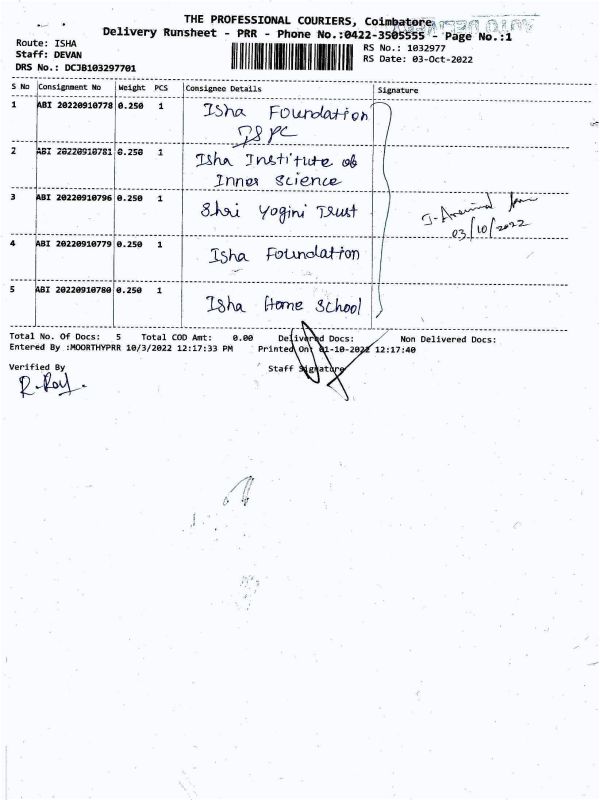 THE PROFESSIONAL COURIERS, Coimbatore
Delivery Runsheet - PRR - Phone No.:0422-3505555 - Page No.:1
Route: ISHA
RS No.: 1032977
Staff: DEVAN
RS Date: 03-Oct-2022
DRS No.: DCJB103297701
S No Consignment No Weight PCS Consignee Details Signature
1 ABI 20220910778 0.250 1 Isha Foundation
2 ABI 20220910781 0.250 1 Isha Institute of
Inner Science
3 ABI 20220910796 0.250 1 Shri Yogini Trust
03/10/2022
4 ABI 20220910779 0.250 1 Isha Foundation
5 ABI 20220910780 0.250 1 Isha Home School
Total No. Of Docs: 5 Total COD Amt: 0.00 Delivered Docs: Non Delivered Docs:
Entered By :MOORTHYPRR 10/3/2022 12:17:33 PM Printed On: 01-10-2022 12:17:40
Verified By
Staff Signature